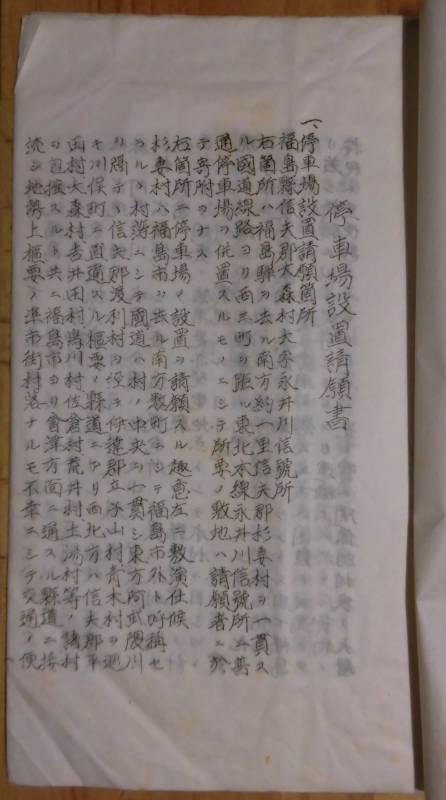 停車場設置請願書
一、停車場設置請願箇所
福島縣信夫郡大森村大字永井川信號所
右箇所ハ福島驛ヲ去ル南方約一里信夫郡杉妻村ヲ一貫ス
ル國道線路ヨリ西三町ヲ距ル東北本線永井川信號所ニ普
通停車場ヲ併置スルモノニシテ所要ノ敷地ハ請願者ニ於
テ寄附ヲナス
右箇所ニ停車場ノ設置ヲ請願スル趣意左ニ敷演仕候
杉妻村ハ福島市ヲ去ル南方数町ニシテ福島市外ト呼稱セ
ラルヽ村落ニシテ國道ハ村ノ中央ヲ一貫シ東方阿武隈川
ヲ隔テヽ信夫郡渡利村ヲ經テ伊達郡立子山村青木村ヲ
モ川俣町ニ直通スル樞要ノ縣道ニアリ西北方ハ信夫郡平
田村大森村吉井田村鳥川村佐倉村荒井村土湯村等ノ諸村
ヲ包擁スルト共ニ福島市ヨリ會津方面ニ通スル縣道ニ接
續シ地勢上樞要ノ準市街村落ナルモ不幸ニシテ交通ノ便